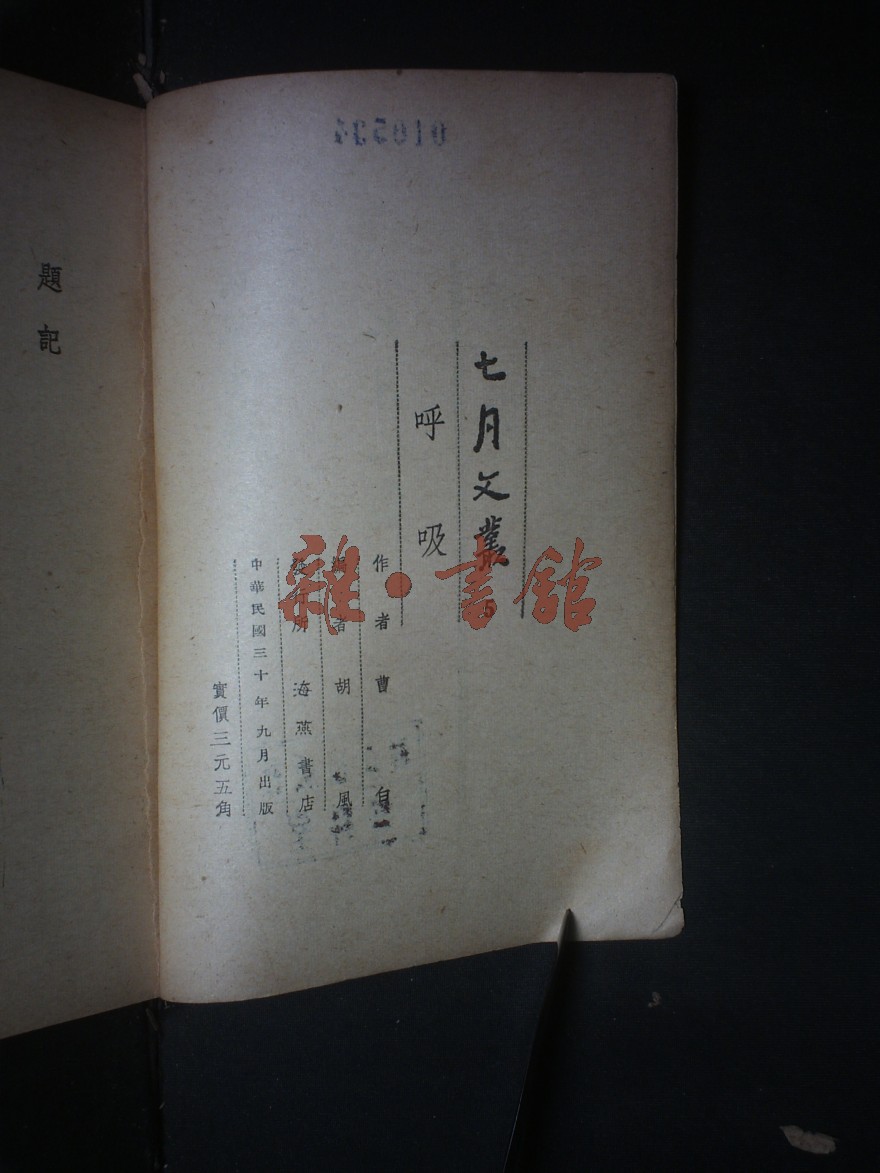 七月文叢 5
呼吸
作者 曹白
編者 胡風
發行所 海燕書店
中華民國三十年九月出版
實價三元五角
題記
010534
雜·書館